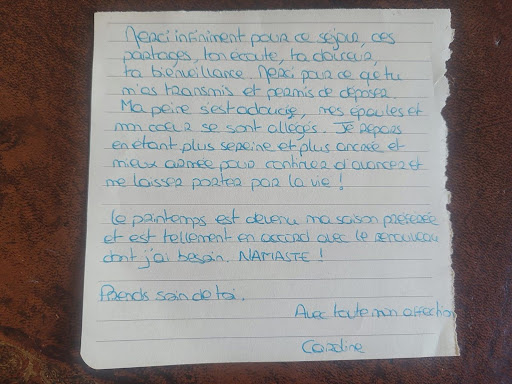 Merci infiniment pour ce séjour, ces
partages, ton écoute, ta douceur,
ta bienveillance. Merci pour ce que tu
m'as transmis et permis de déposer.
Ma peine s'est adoucie, mes épaules et
mon coeur se sont allégés. Je repars
en étant plus sereine et plus ancrée et
mieux armée pour continuer d'avancer et
me laisser porter par la vie !
Le printemps est devenu ma saison préférée
et est tellement en accord avec le renouveau
dont j'ai besoin. NAMASTE !
Prends soin de toi.
Avec toute mon affection
Caroline